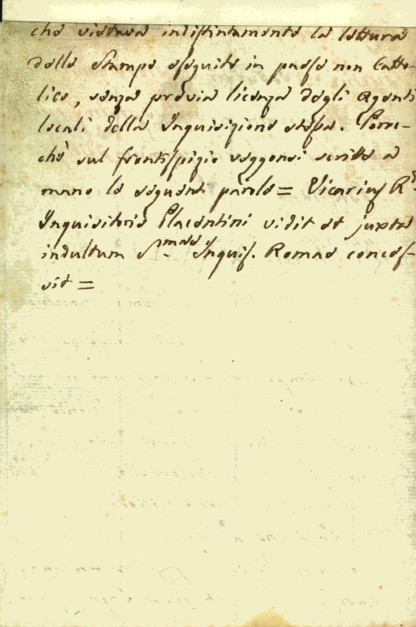 che vietava indistintamente la lettura
delle stampe eseguite in paese non Catto-
lico, senza previa licenza degli agenti
locali della Inquisizione stessa. Perc-
chè sul frontispizio veggonsi scritte a
mano le seguenti parole = Vicarius R.
Inquisitoris Placentini vidit et juxta
indultum Smae Inquis. Romae conces-
sit =